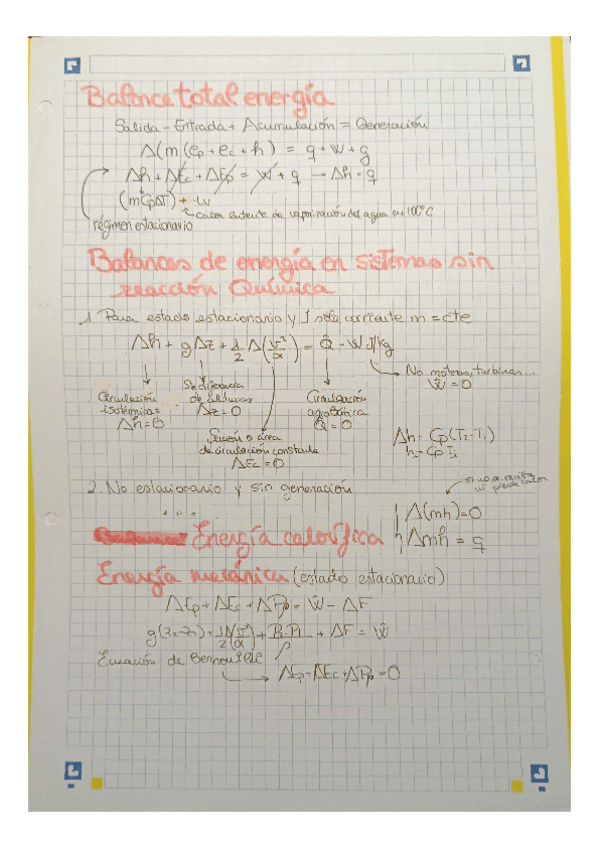 Balance total energía
Salida - Entrada + Acumulación = Generación
Δ(m(ep + ec + h) = q + W + g
Δh + ΔEc + ΔEp = W + q → Δh = q
(mCpΔT) + · Lv
calor latente de vaporización del agua en 100°C
régimen estacionario
Balances de energía en sistemas sin
reacción Química
1. Para estado estacionario y 1 sola corriente m = cte
Δh + gΔz + 1/2 Δ(v²/α) = Q̂ - Ŵ J/kg
No motores, turbinas...
Ŵ = 0
Circulación
isotérmica =
Δh = 0
Sin diferencia
de alturas
Δz = 0
Circulación
adiabática
Q̂ = 0
Sección o área
de circulación constante
ΔEc = 0
Δh = Cp(T2 - T1)
hi = Cp Ti
2. No estacionario y sin generación
si no se recibe
ni pierde calor
Δ(mh) = 0
Δmh = q
Energía calorífica
Energía mecánica (estado estacionario)
ΔEp + ΔEc + ΔPp = Ŵ - ΔF
g(z2 - z1) + 1/2 Δ(v²/α) + P2-P1/ρ + ΔF = Ŵ
Ecuación de Bernouilli
ΔEp + ΔEc + ΔPp = 0